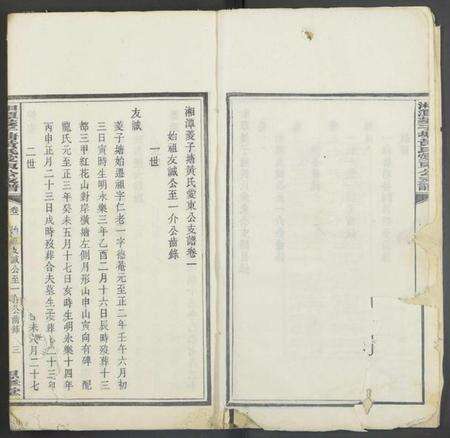 湘潭菱子塘黃氏愛東公支譜卷一
始祖友誠公至一介公齒錄
一世
友誠
菱子塘始遷祖字仁老一字德菴元至正二年壬午六月初
三日寅時生明永樂三年乙酉二月十六日辰時歿葬十三
都三甲紅花山對岸橫塘左側月形山申山寅向有碑 配
龍氏元至正三年癸未五月十七日亥時生明永樂十四年
丙申正月二十三日戌時歿葬合夫墓生子
二世
未 月二十七
始祖友誠公至一介公齒錄 三